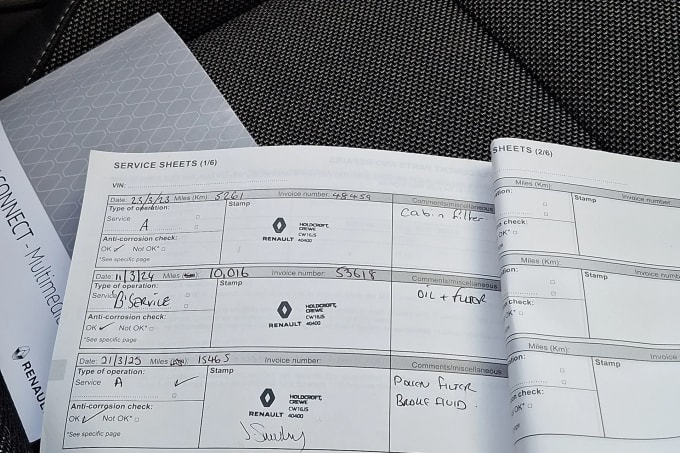 CONNECT - Multimedia
RENAULT
SERVICE SHEETS (1/6)
VIN:
Date: 23/3/23 Miles (Km): 5261 Invoice number: 48459 Comments/miscellaneous
Type of operation:
Service A
Stamp
RENAULT
HOLDCROFT,
CREWE
CW16JS
40400
Cabin filter
Anti-corrosion check:
OK ✓ Not OK*
*See specific page
Date: 11/3/24 Miles 10,016 Invoice number: 53618 Comments/miscellaneous
Type of operation:
Service B SERVICE
Stamp
RENAULT
HOLDCROFT,
CREWE
CW16JS
40400
OIL + FILTER
Anti-corrosion check:
OK ✓ Not OK*
*See specific page
Date: 21/3/25 Miles 15465 Invoice number: Comments/miscellaneous
Type of operation:
Service A ✓
Stamp
RENAULT
HOLDCROFT,
CREWE
CW16JS
40400
POLLEN FILTER
BRAKE FLUID.
Anti-corrosion check:
OK ✓ Not OK*
*See specific page
SHEETS (2/6)
Miles (Km): Invoice number
Stamp
check:
OK*
Miles (Km): Invoice
Stamp
check:
OK*
Miles (Km): Invoice
Stamp
check:
OK*